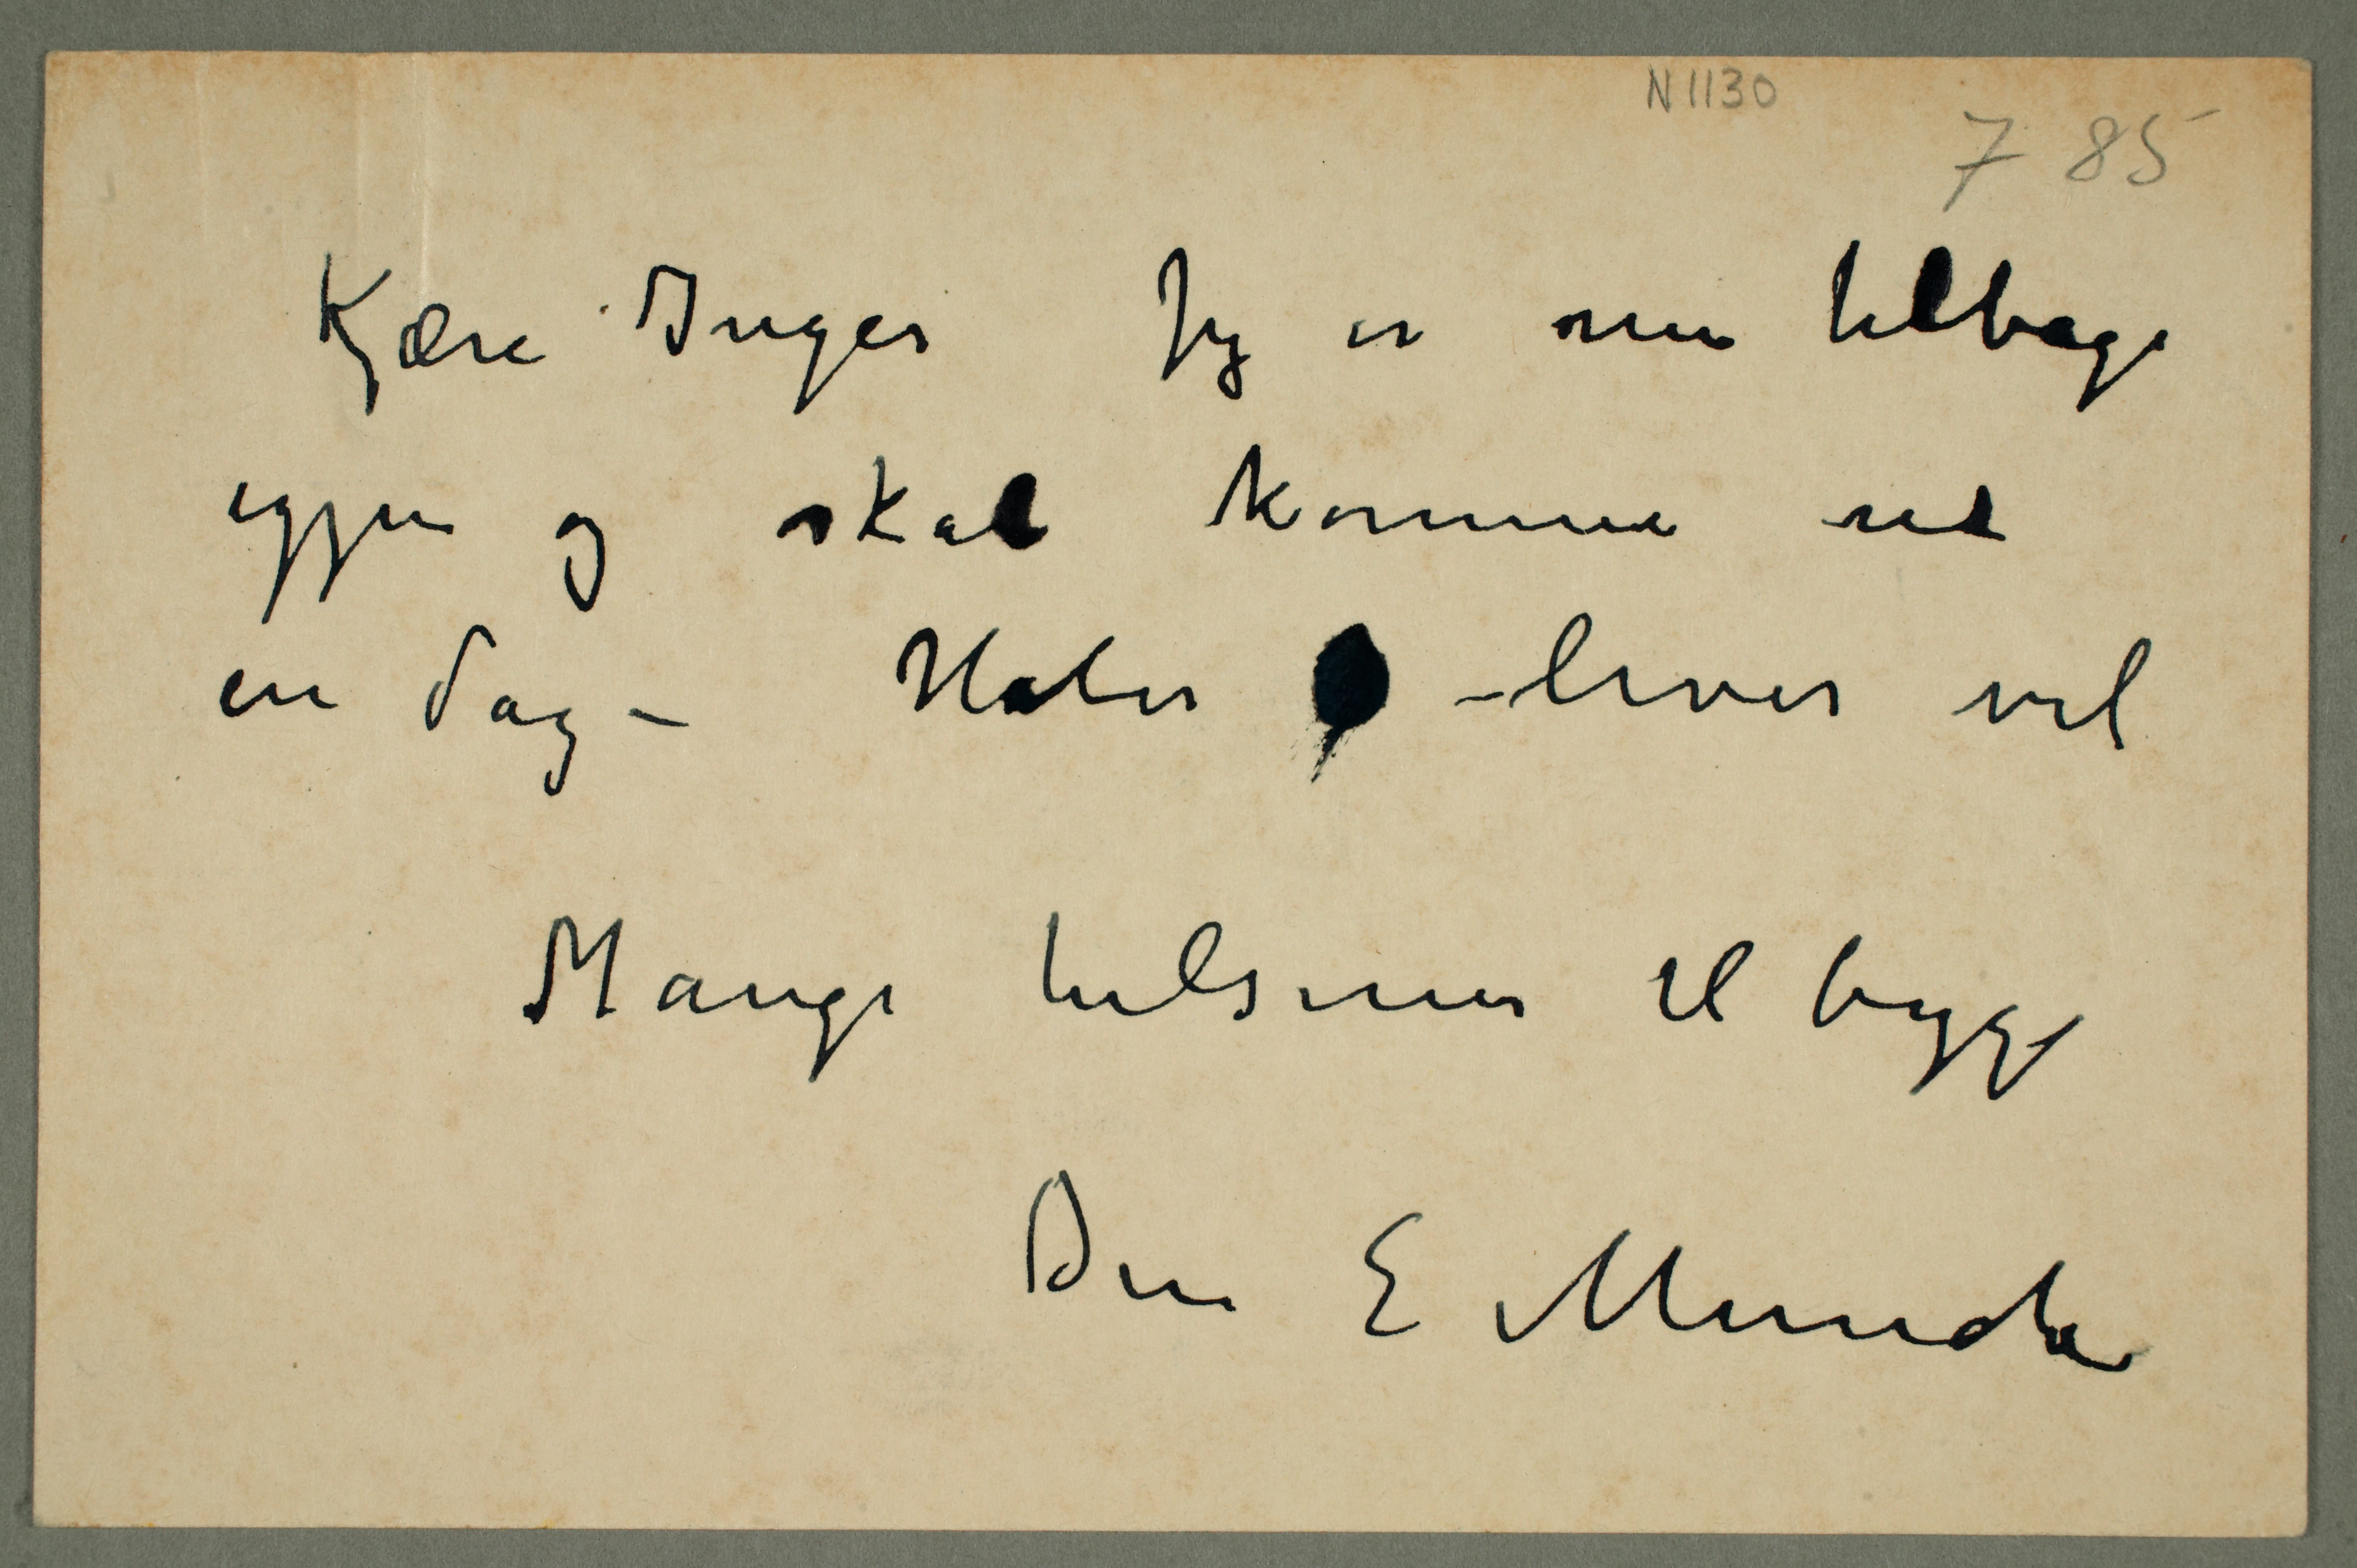 N 1130
7 85
Kjære Inger Jeg er nu tilbage
igjen og skal komme ud
en dag – Haber – lever vel
Mange hilsener til begge
Din E Munch